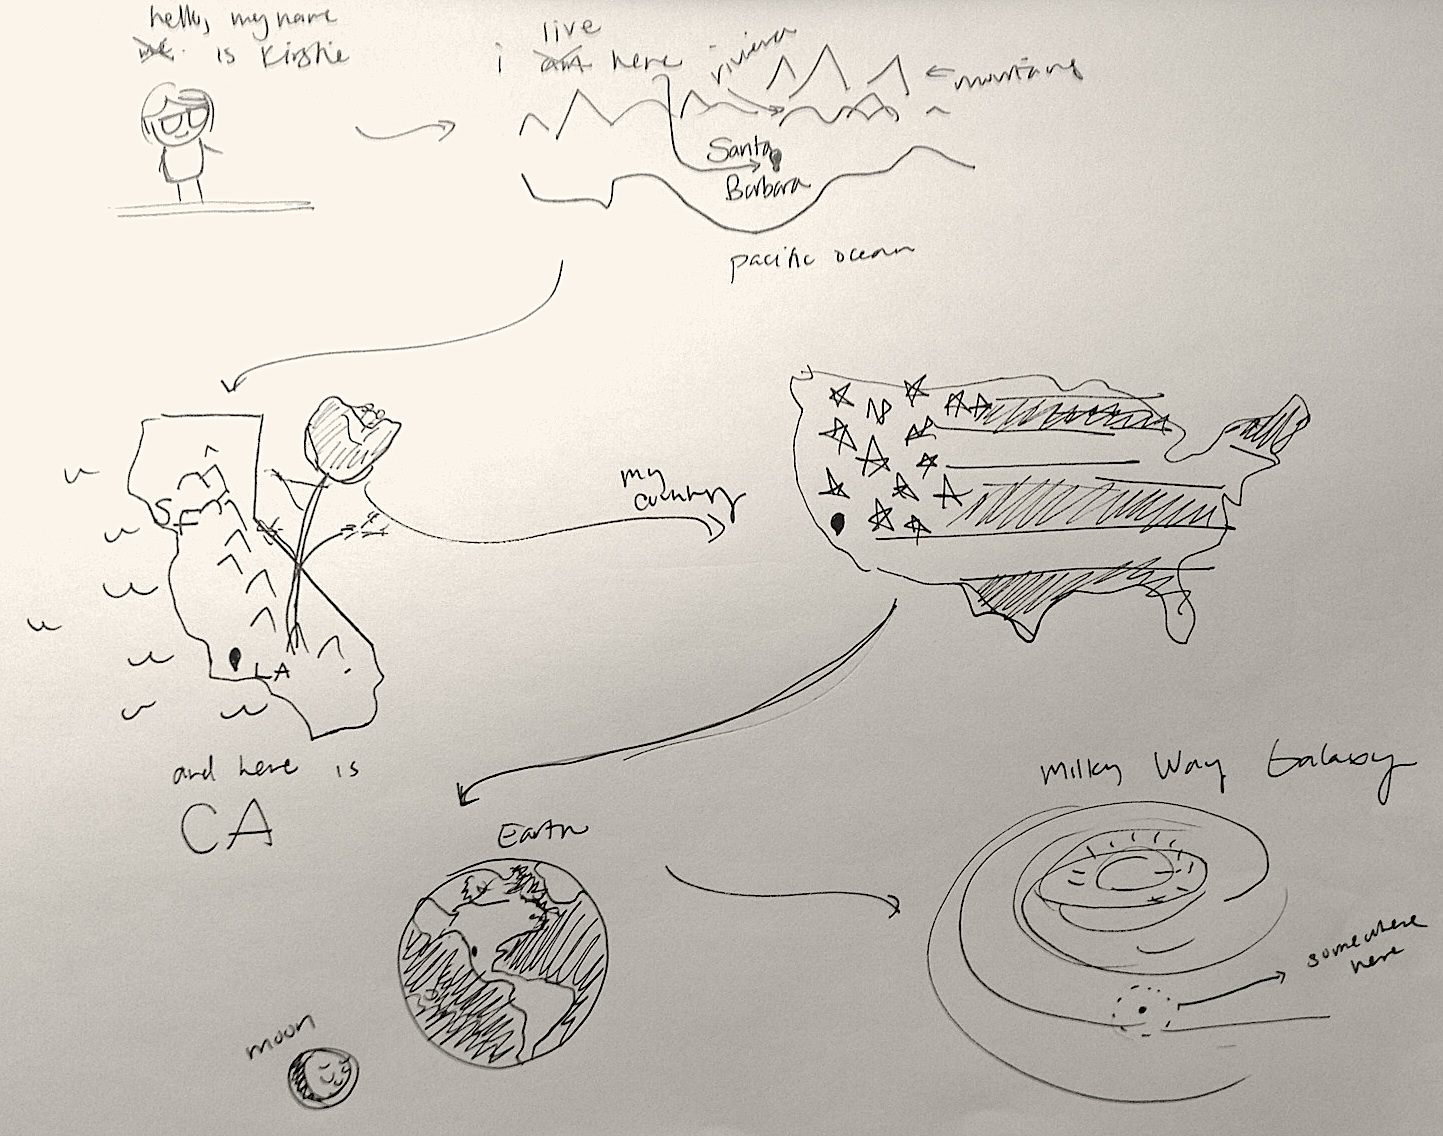 hello, my name
me is Kirstie
live
i am here
riviera
mountains
Santa
Barbara
pacific ocean
SF
LA
and here is
CA
my
country
Earth
moon
Milky Way Galaxy
somewhere
here